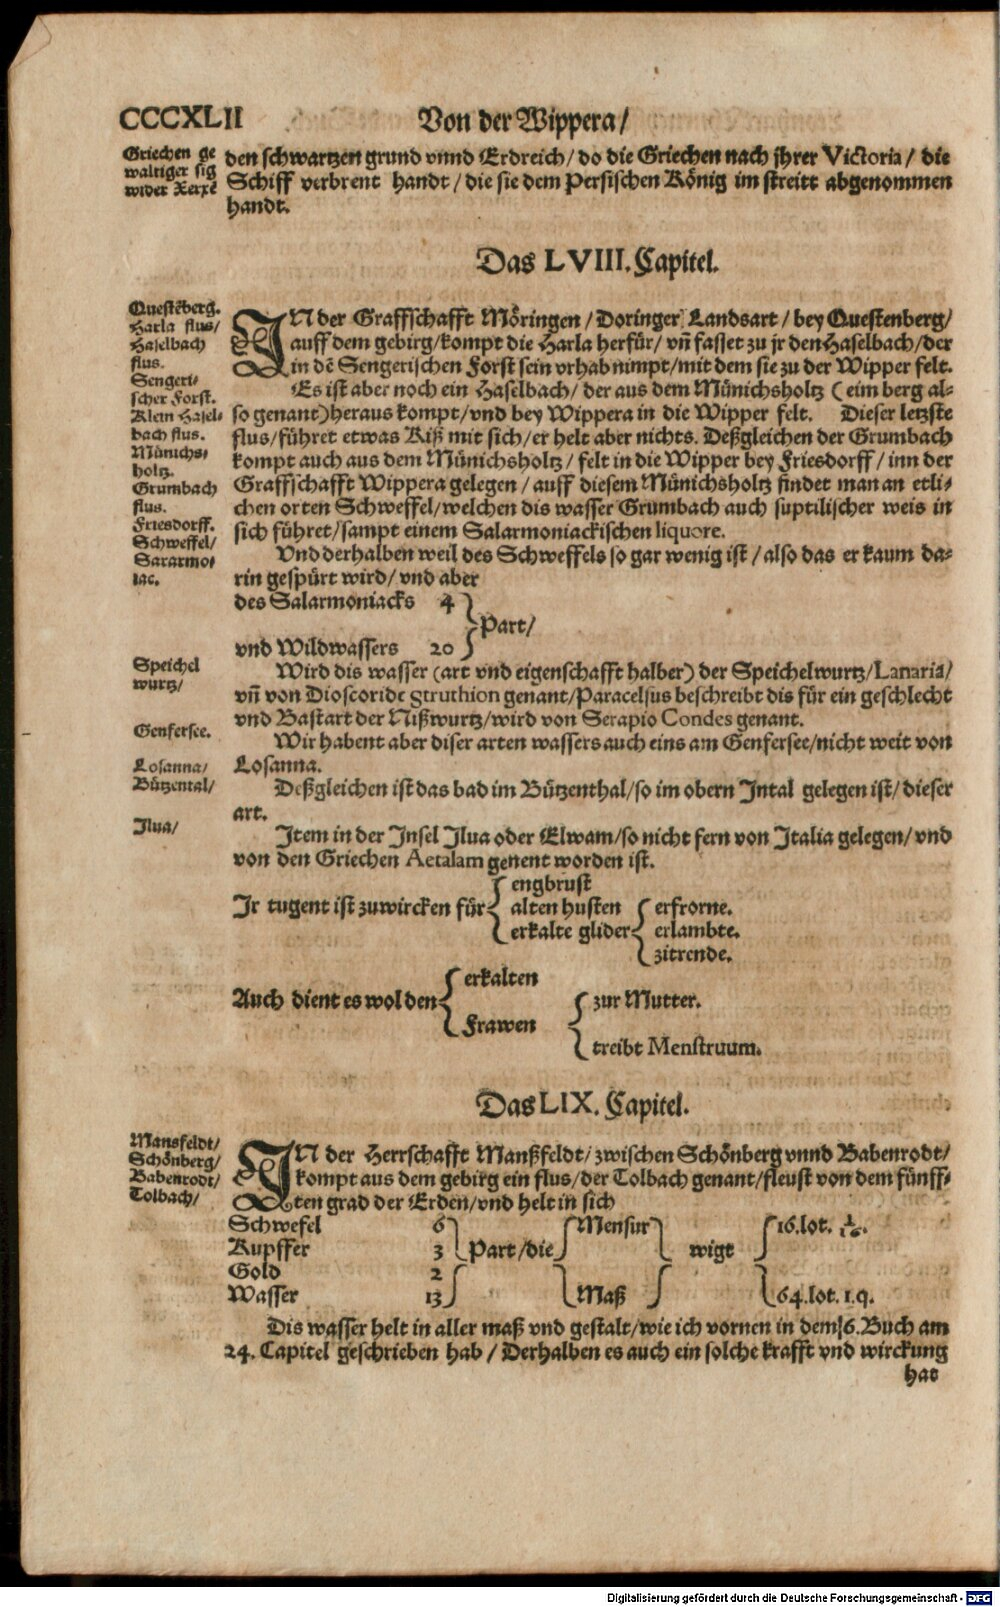 CCCXLII
Von der Wippera/
Griechen ge
waltiger sig
wider Xerxē
den schwartzen grund vnnd Erdreich/ do die Griechen nach jhrer Victoria/ die
Schiff verbrent handt/ die sie dem Persischen König im streitt abgenommen
handt.
Das LVIII. Capitel.
Questēberg.
Harla flus/
Haselbach
flus.
Sengeri/
scher Forst.
Klein Hasel-
bach flus.
Münichs/
holtz.
Grumbach
flus.
Friesdorff.
Schweffel/
Sararmo/
iac.
IN der Graffschafft Möringen/ Doringer Landsart/ bey Questenberg/
auff dem gebirg/ kompt die Harla herfür/ vñ fasset zu jr den Haselbach/ der
in dē Sengerischen Forst sein vrhab nimpt/ mit dem sie zu der Wipper felt.
Es ist aber noch ein Haselbach/ der aus dem Münichsholtz (eim berg al-
so genant) heraus kompt/ vnd bey Wippera in die Wipper felt. Dieser letzste
flus/ führet etwas Kiß mit sich/ er helt aber nichts. Deßgleichen der Grumbach
kompt auch aus dem Münichsholtz/ felt in die Wipper bey Friesdorff/ inn der
Graffschafft Wippera gelegen/ auff diesem Münichsholtz findet man an etli-
chen orten Schweffel/ welchen dis wasser Grumbach auch suptilischer weis in
sich führet/ sampt einem Salarmoniackischen liquore.
Vnd derhalben weil des Schweffels so gar wenig ist/ also das er kaum da-
rin gespürt wird/ vnd aber
des Salarmoniacks 4
Part/
vnd Wildwassers 20
Speichel
wurtz/
Wird dis wasser (art vnd eigenschafft halber) der Speichelwurtz/ Lanaria/
vñ von Dioscoride struthion genant/ Paracelsus beschreibt dis für ein geschlecht
vnd Bastart der Nißwurtz/ wird von Serapio Condes genant.
Genfersee.
Losanna/
Bützental/
Wir habent aber diser arten wassers auch eins am Genfersee/ nicht weit von
Losanna.
Deßgleichen ist das bad im Bützenthal/ so im obern Intal gelegen ist/ dieser
art.
Ilua/
Item in der Insel Ilua oder Elwam/ so nicht fern von Italia gelegen/ vnd
von den Griechen Aetalam genent worden ist.
engbrust
Ir tugent ist zuwircken für alten husten erfrorne.
erkalte glider erlambte.
zitrende.
erkalten
Auch dient es wol den zur Mutter.
Frawen
treibt Menstruum.
Das LIX. Capitel.
Mansfeldt/
Schönberg/
Babenrodt/
Tolbach/
IN der Herrschafft Manßfeldt/ zwischen Schönberg vnnd Babenrodt/
kompt aus dem gebirg ein flus/ der Tolbach genant/ fleust von dem fünff-
ten grad der Erden/ vnd helt in sich
Schwefel 6 Mensur 16. lot. 1/16.
Kupffer 3 Part/ die wigt
Gold 2
Wasser 13 Maß 64. lot. 1. q.
Dis wasser helt in aller maß vnd gestalt/ wie ich vornen in dem 6. Buch am
24. Capitel geschrieben hab/ Derhalben es auch ein solche krafft vnd wirckung
hat
Digitalisierung gefördert durch die Deutsche Forschungsgemeinschaft - DFG